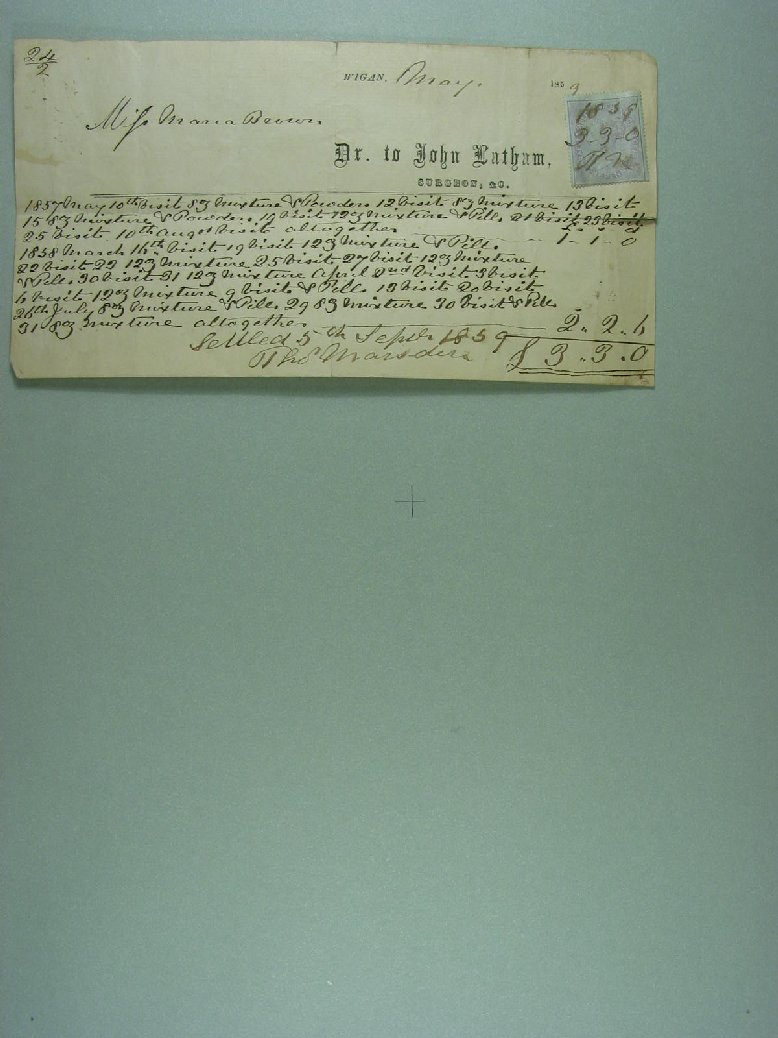 24
2
WIGAN, May. 1859
Miss Maria Brown
1859
3-3-0
Dr. to John Latham,
SURGEON, &C.
1857 May 10th Visit 8℥ Mixture & Powders 12 Visit 8℥ Mixture 13 Visit
15 8℥ Mixture & Powders 19 Visit 12℥ Mixture & Pills 21 Visit 23 Visit
25 Visit 10th August Visit altogether £ s d 1-1-0
1858 March 16th Visit 19 Visit 12℥ Mixture & Pills
22 Visit 22 12℥ Mixture 25 Visit 27 Visit 12℥ Mixture
& Pills 30 Visit 31 12℥ Mixture April 2nd Visit 3 Visit
6 Visit 12℥ Mixture 9 Visit & Pills 13 Visit 20 Visit
26th July 8℥ Mixture & Pills 29 8℥ Mixture 30 Visit & Pills
31 8℥ Mixture altogether 2.2.6
Settled 5th Septr 1859
Thos Marsden £ 3.3.0